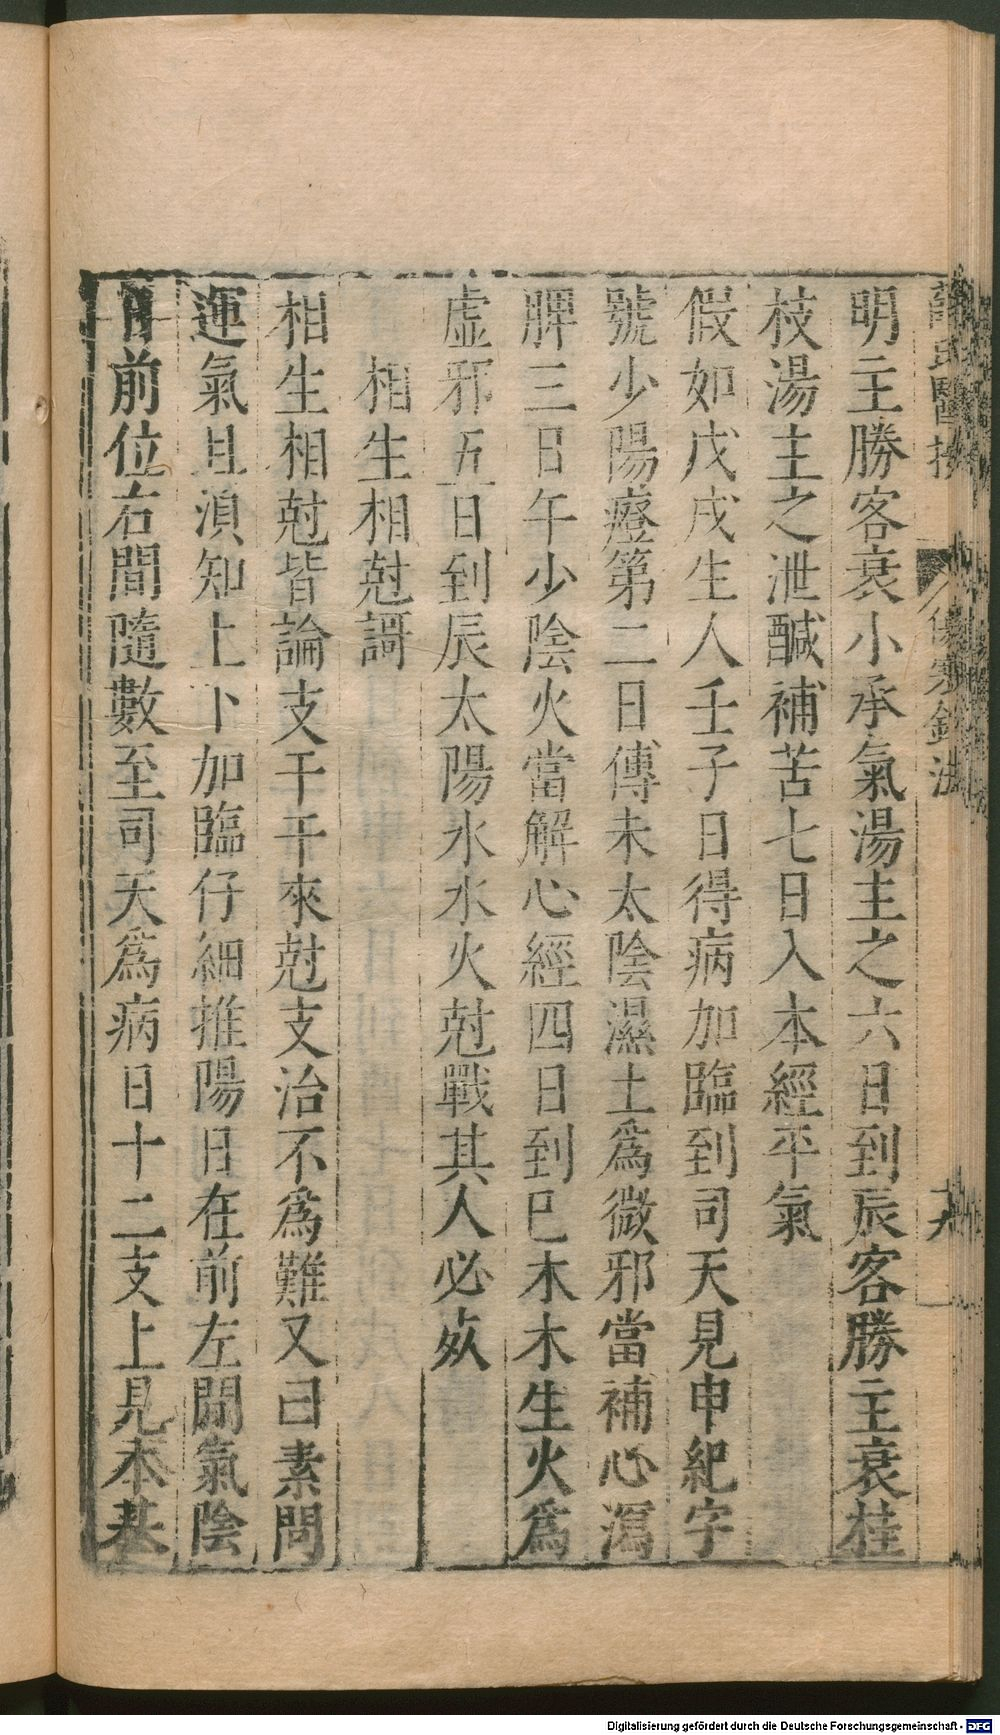 明主勝客衰小承氣湯主之六日到辰客勝主衰桂
枝湯主之泄醎補苦七日入本經平氣
假如戊戌生人壬子日得病加臨到司天見申紀字
號少陽證第二日傳未太陰濕土為微邪當補心瀉
脾三日午少陰火當解心經四日到巳木木生火為
虛邪五日到辰太陽水水火尅戰其人必死
相生相尅謌
相生相尅皆論支干干來尅支治不為難又曰素問
運氣且湏知上下加臨仔細推陽日在前左間氣陰
日前位右間隨數至司天為病日十二支上見本基
Digitalisierung gefördert durch die Deutsche Forschungsgemeinschaft - DFG